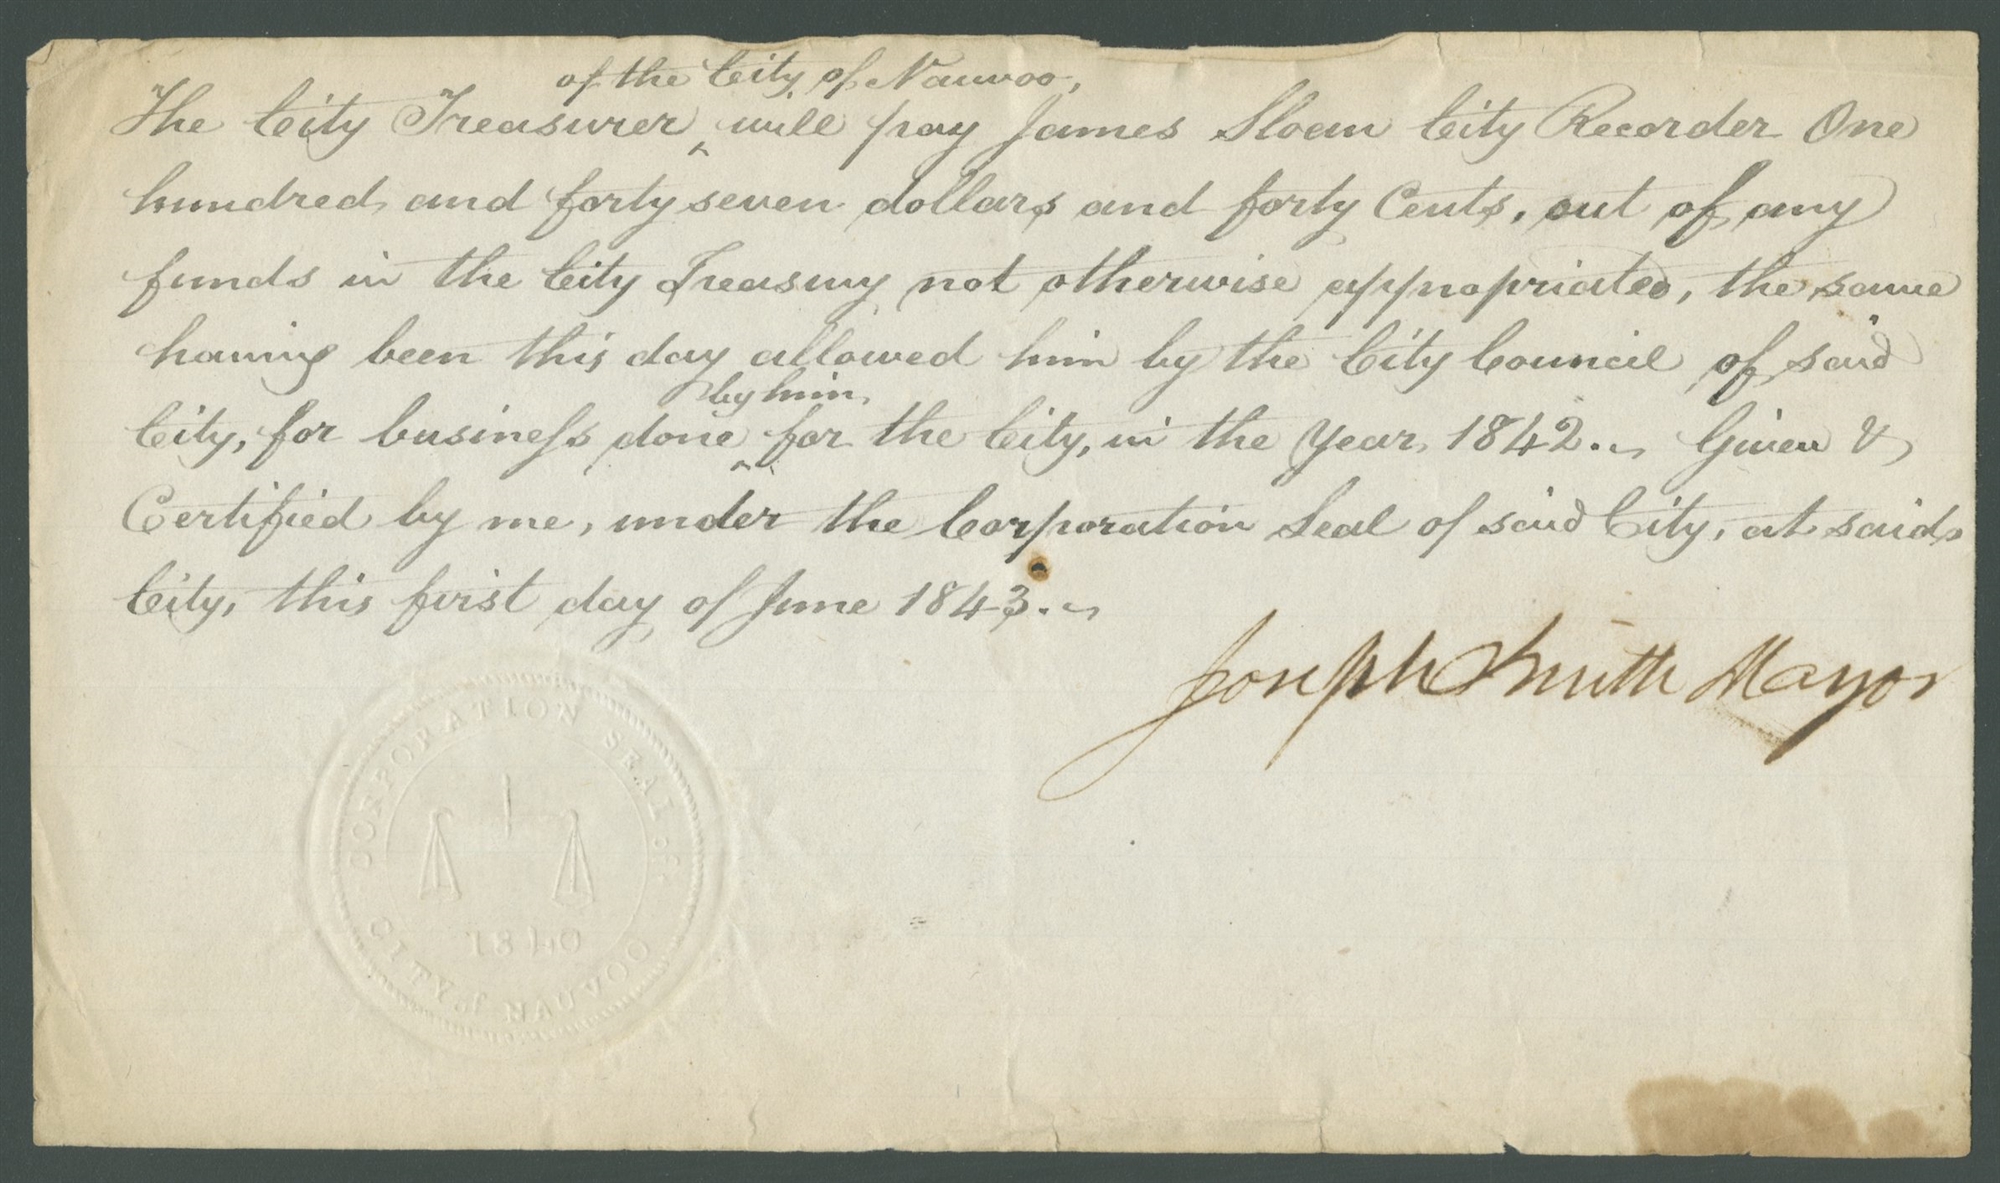 of the City of Nauvoo,
The City Treasurer ‸ will pay James Sloan City Recorder One
hundred and forty seven dollars and forty Cents, out of any
funds in the City Treasury not otherwise appropriated, the same
having been this day allowed him by the City Council of said
by him
City, for business done ‸ for the City, in the Year 1842. Given &
Certified by me, under the Corporation Seal of said City, at said
City, this first day of June 1843.
Joseph Smith Mayor
CORPORATION SEAL of
1840
CITY of NAUVOO